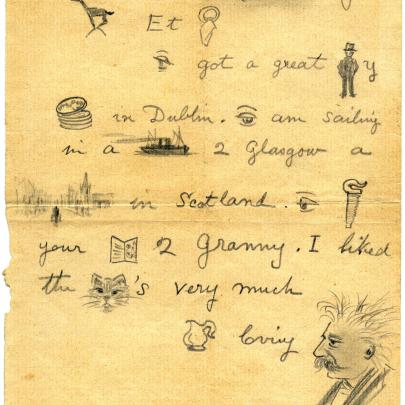 Et
got a great y
in Dublin. am sailing
in a 2 Glasgow a
in Scotland.
your 2 Granny. I liked
the 's very much
loving